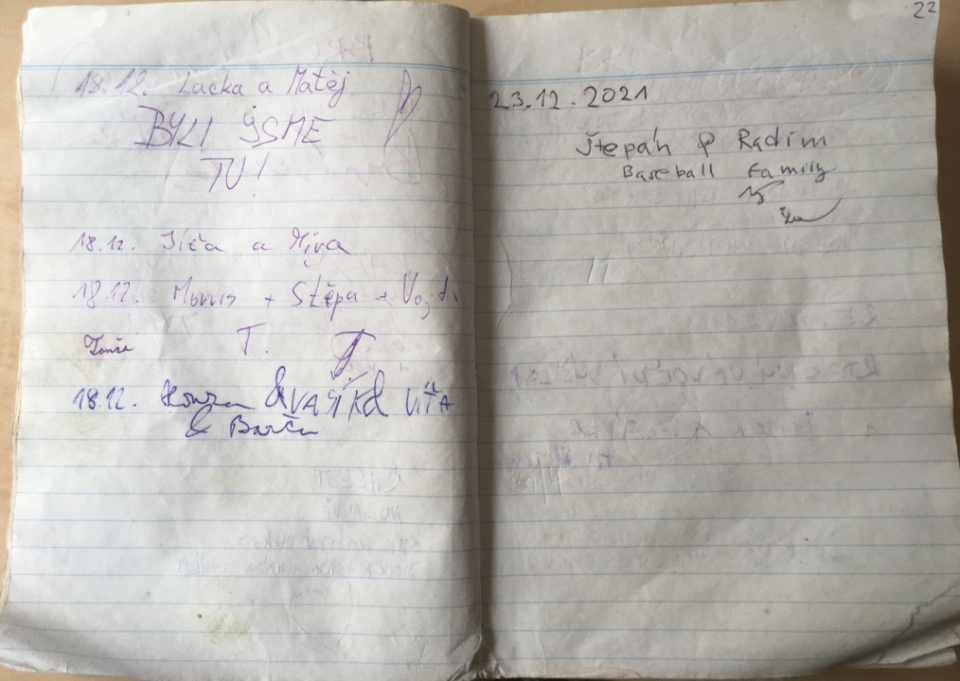 18.12. Lucka a Matěj
BYLI JSME
TU!
18.12. Jíťa a Míra
18.12. + Štěpa +
T.
18.12. Honza & VAŠÍK & VÍŤA
& Barča
22
23.12.2021
Štěpán & Radim
Baseball Family